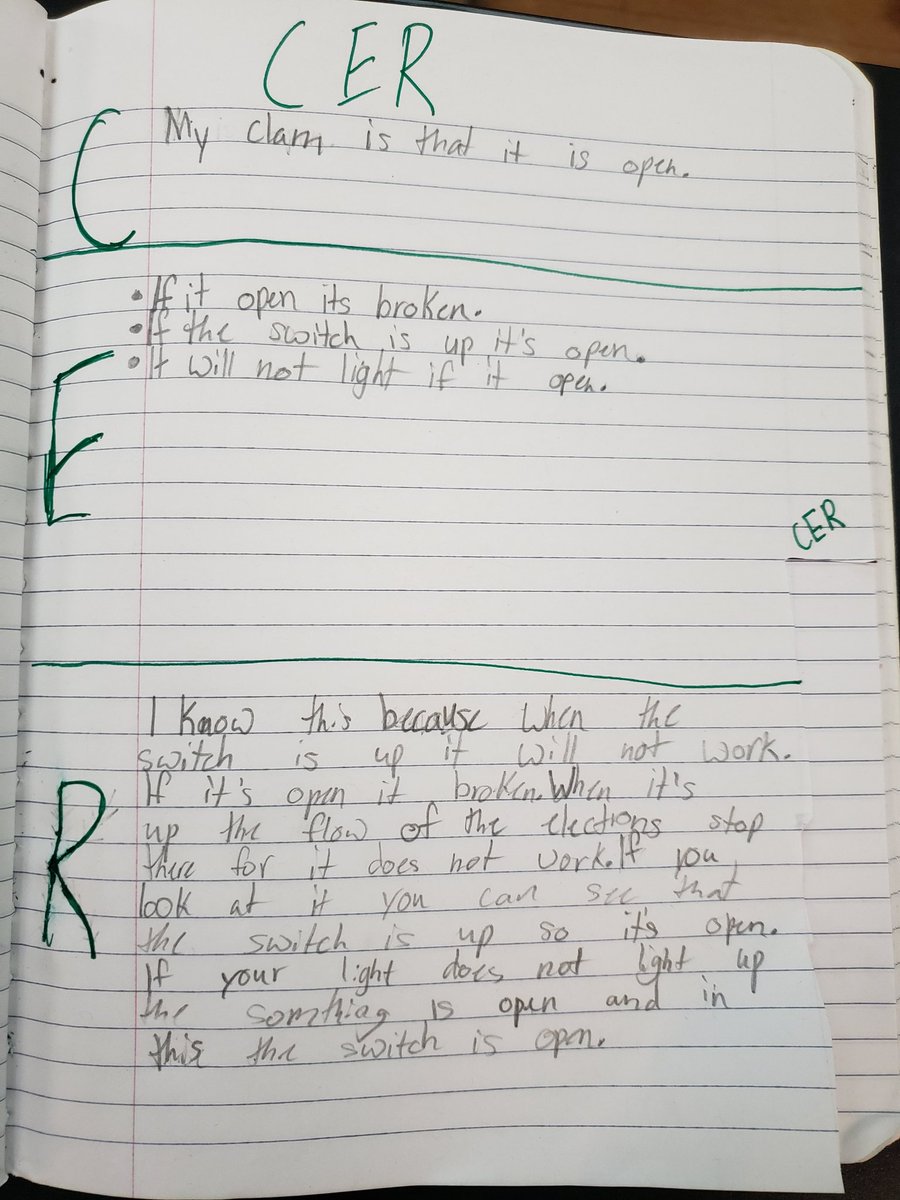 CER
C
My clam is that it is open.
E
• If it open its broken.
• If the switch is up it's open.
• It will not light if it open.
CER
R
I know this because when the
switch is up it will not work.
If it's open it broken. When it's
up the flow of the elections stop
there for it does not work. If you
look at it you can see that
the switch is up so it's open.
If your light does not light up
the somthing is open and in
this the switch is open.